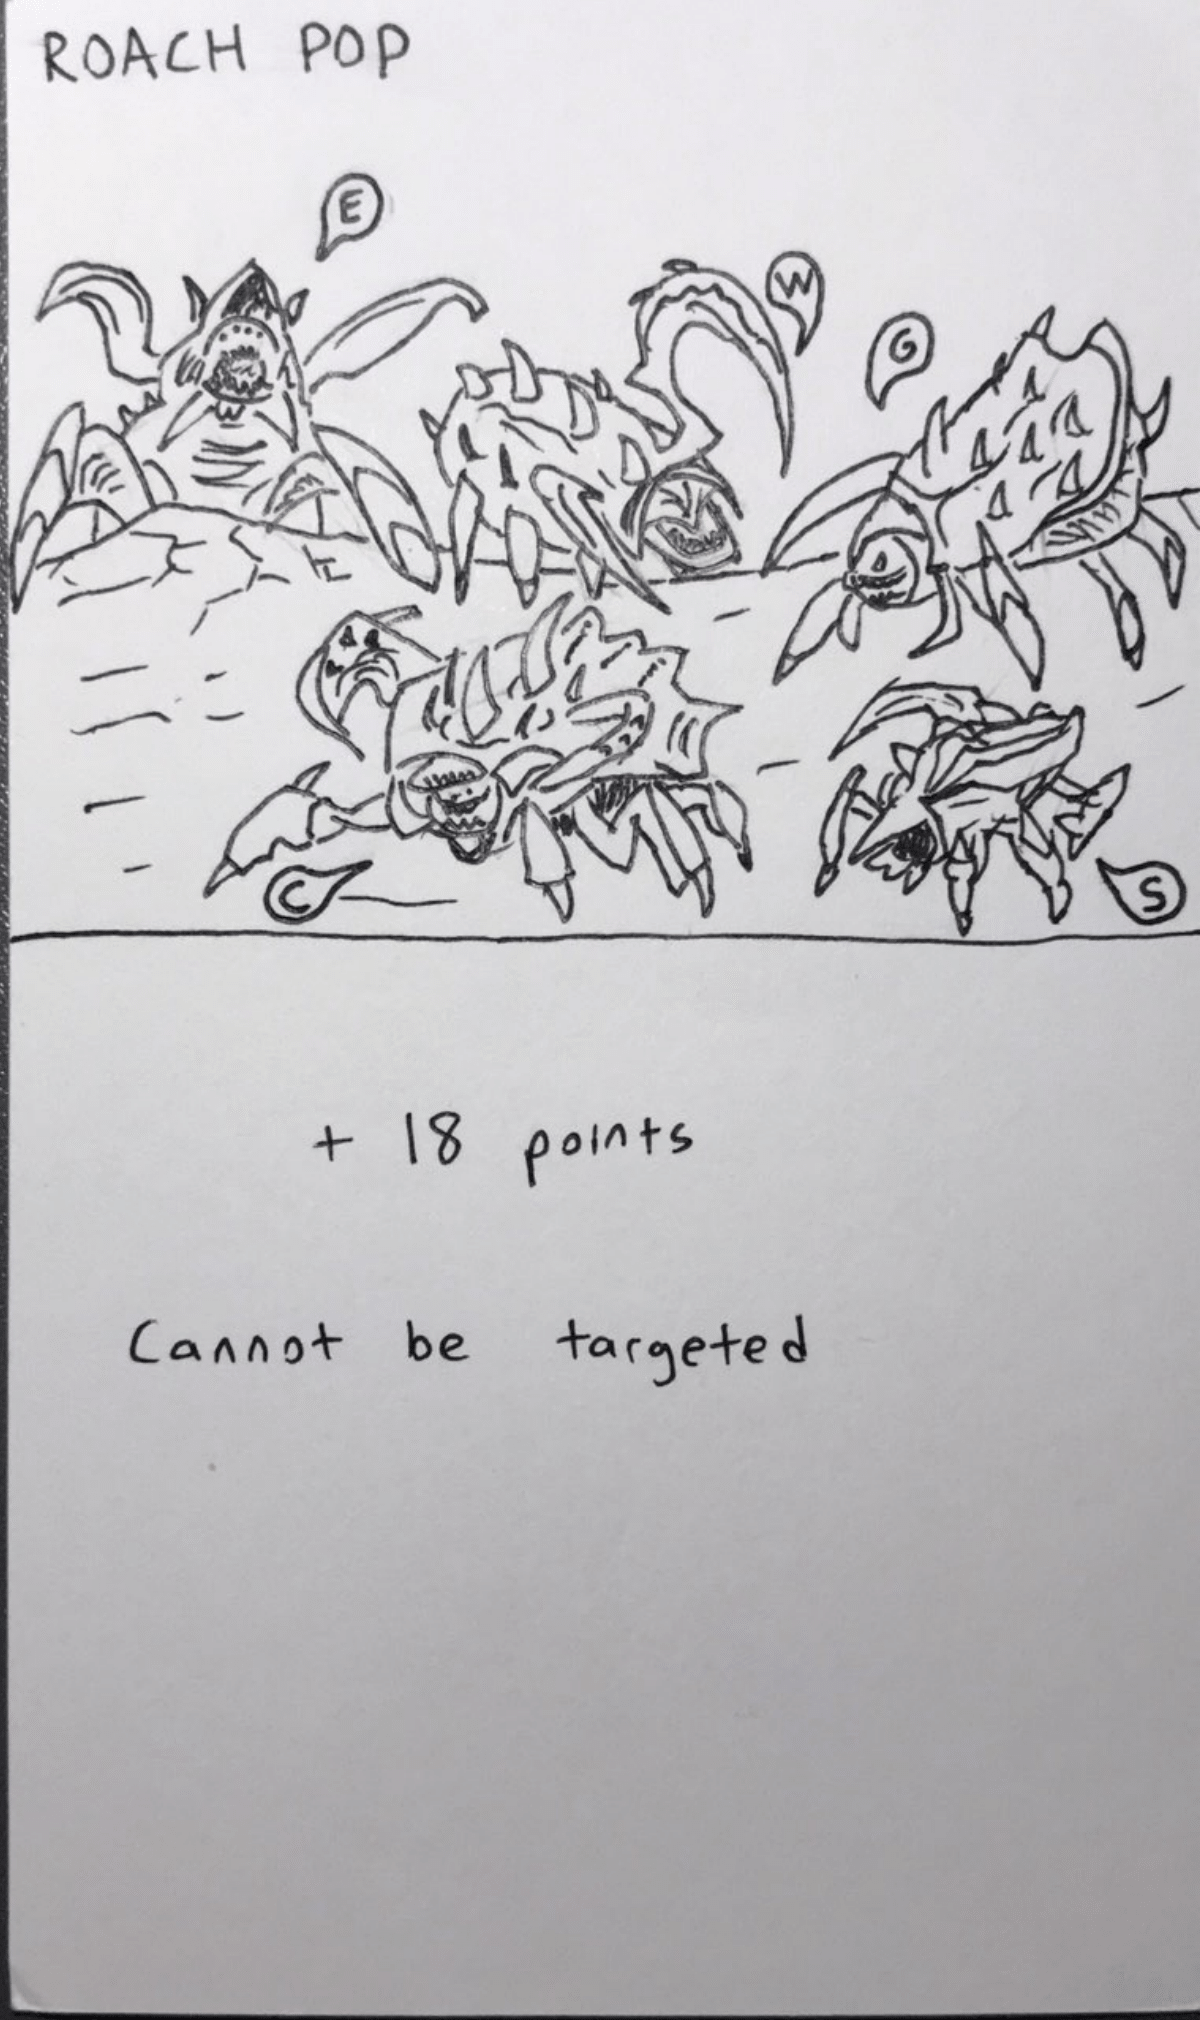 ROACH POP
E
W
G
C
S
+ 18 points
Cannot be targeted